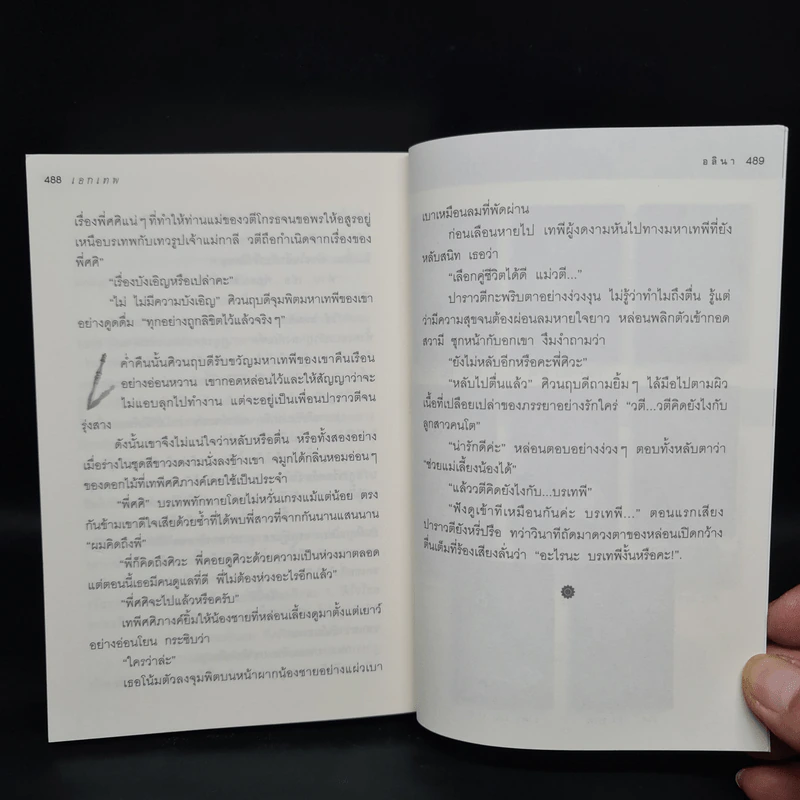 488 เอกเทพ
เรื่องพี่ศศิแน่ๆ ที่ทำให้ท่านแม่ของวตีโกรธจนขอพรให้อสูรอยู่
เหนือบรเทพกับเทวรูปเจ้าแม่กาลี วตีถือกำเนิดจากเรื่องของ
พี่ศศิ”
“เรื่องบังเอิญหรือเปล่าคะ”
“ไม่ ไม่มีความบังเอิญ” ศิวนฤบดีจุมพิตมหาเทพีของเขา
อย่างดูดดื่ม “ทุกอย่างถูกลิขิตไว้แล้วจริงๆ”
ค่ำคืนนั้นศิวนฤบดีรับขวัญมหาเทพีของเขาคืนเรือน
อย่างอ่อนหวาน เขากอดหล่อนไว้และให้สัญญาว่าจะ
ไม่แอบลุกไปทำงาน แต่จะอยู่เป็นเพื่อนปาราวตีจน
รุ่งสาง
ดังนั้นเขาจึงไม่แน่ใจว่าหลับหรือตื่น หรือทั้งสองอย่าง
เมื่อร่างในชุดสีขาวงดงามนั่งลงข้างเขา จมูกได้กลิ่นหอมอ่อนๆ
ของดอกไม้ที่เทพีศศิภางค์เคยใช้เป็นประจำ
“พี่ศศิ” บรเทพทักทายโดยไม่หวั่นเกรงแม้แต่น้อย ตรง
กันข้ามเขาดีใจเสียด้วยซ้ำที่ได้พบพี่สาวที่จากกันนานแสนนาน
“ผมคิดถึงพี่”
“พี่ก็คิดถึงศิวะ พี่คอยดูศิวะด้วยความเป็นห่วงมาตลอด
แต่ตอนนี้เธอมีคนดูแลที่ดี พี่ไม่ต้องห่วงอะไรอีกแล้ว”
“พี่ศศิจะไปแล้วหรือครับ”
เทพีศศิภางค์ยิ้มให้น้องชายที่หล่อนเลี้ยงดูมาตั้งแต่เยาว์
อย่างอ่อนโยน กระซิบว่า
“ใครว่าล่ะ”
เธอโน้มตัวลงจุมพิตบนหน้าผากน้องชายอย่างแผ่วเบา
อลินา 489
เบาเหมือนลมที่พัดผ่าน
ก่อนเลือนหายไป เทพีผู้งดงามหันไปทางมหาเทพีที่ยัง
หลับสนิท เธอว่า
“เลือกคู่ชีวิตได้ดี แม่วตี...”
ปาราวตีกะพริบตาอย่างง่วงงุน ไม่รู้ว่าทำไมถึงตื่น รู้แต่
ว่ามีความสุขจนต้องผ่อนลมหายใจยาว หล่อนพลิกตัวเข้ากอด
สวามี ซุกหน้ากับอกเขา งึมงำถามว่า
“ยังไม่หลับอีกหรือคะพี่ศิวะ”
“หลับไปตื่นแล้ว” ศิวนฤบดีถามยิ้มๆ ไล้มือไปตามผิว
เนื้อที่เปลือยเปล่าของภรรยาอย่างรักใคร่ “วตี...วตีคิดยังไงกับ
ลูกสาวคนโต”
“น่ารักดีค่ะ” หล่อนตอบอย่างง่วงๆ ตอบทั้งหลับตาว่า
“ช่วยแม่เลี้ยงน้องได้”
“แล้ววตีคิดยังไงกับ...บรเทพี”
“ฟังดูเข้าทีเหมือนกันค่ะ บรเทพี...” ตอนแรกเสียง
ปาราวตียังหรี่ปรือ ทว่าวินาทีถัดมาดวงตาของหล่อนเปิดกว้าง
ตื่นเต็มที่ร้องเสียงลั่นว่า “อะไรนะ บรเทพีงั้นหรือคะ!”.